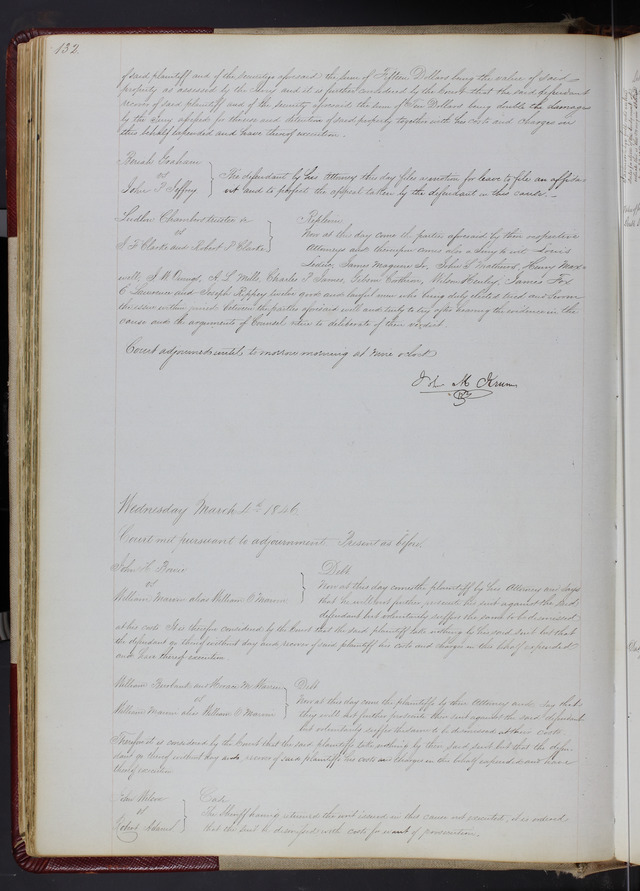 132
of said plaintiff and of the securities aforesaid the sum of Fifteen Dollars being the value of said
property as assessed by the Jury and it is further considered by the Court that the said defendant
recover of said plaintiff and of the security aforesaid the sum of Ten Dollars being double the damages
by the Jury assessed for the use and detention of said property together with his costs and charges in
this behalf expended and have thereof execution.
Graham
vs
John P Jeffrey
The defendant by his Attorney this day files a motion for leave to file an affida-
vit and to perfect the appeal taken by the defendant in this cause.
Ludlow Chambers trustee &c
vs
S F Clarke and Robert P Clarke
Replevin
Now at this day come the parties aforesaid by their respective
Attorneys and thereupon comes also a Jury to wit Louis
James Magwire Jr, John S Matthews, Henry Max-
well, J W A L Mills, Charles P James, Wilson James Fox
C Lawrence and Joseph Rippey twelve good and lawful men who being duly elected tried and sworn
the issue within joined between the parties aforesaid well and truly to try after hearing the evidence in the
cause and the arguments of Counsel retire to deliberate of their verdict.
Court adjourned until tomorrow morning at nine o'clock
Jno M Krum
Wednesday March 4th 1846.
Court met pursuant to adjournment. Present as before.
John L
vs
William Marvin alias William O Marvin
Debt
Now at this day comes the plaintiff by his Attorney and says
that he will not further prosecute this suit against the said
defendant but voluntarily suffers the same to be dismissed
at his costs. It is therefore considered by the Court that the said plaintiff take nothing by his said suit but that
the defendant go thereof without day and recover of said plaintiff his costs and charges in this behalf expended
and have thereof execution.
William and Hiram M
vs
William Marvin alias William O Marvin
Debt
Now at this day come the plaintiffs by their Attorney and say that
they will not further prosecute their suit against the said defendant
but voluntarily suffer the same to be dismissed at their costs
Therefore it is considered by the Court that the said plaintiffs take nothing by their said suit but that the defen-
dant go thereof without day and recover of said plaintiffs his costs and charges in this behalf expended and have
thereof execution
John
vs
Robert
Case
The Sheriff having returned the writ issued in this cause not executed, it is ordered
that this suit be dismissed with costs for want of prosecution.